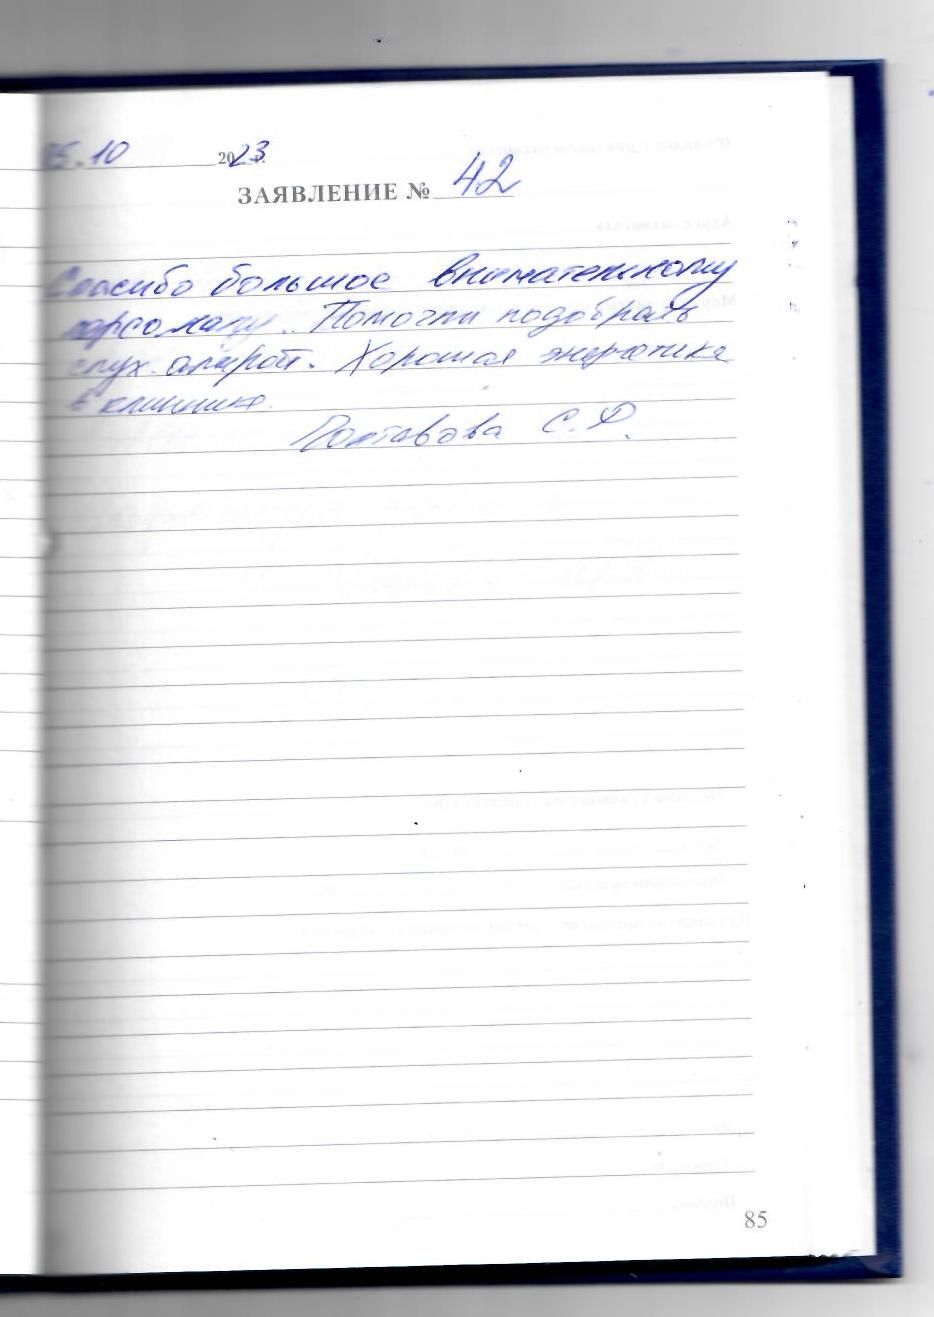 05.10 2023 г.
ЗАЯВЛЕНИЕ № 42
Спасибо большое внимательному
персоналу. Помогли подобрать
слух. аппарат. Хорошая энергетика
в клинике.
С.Ф.
85